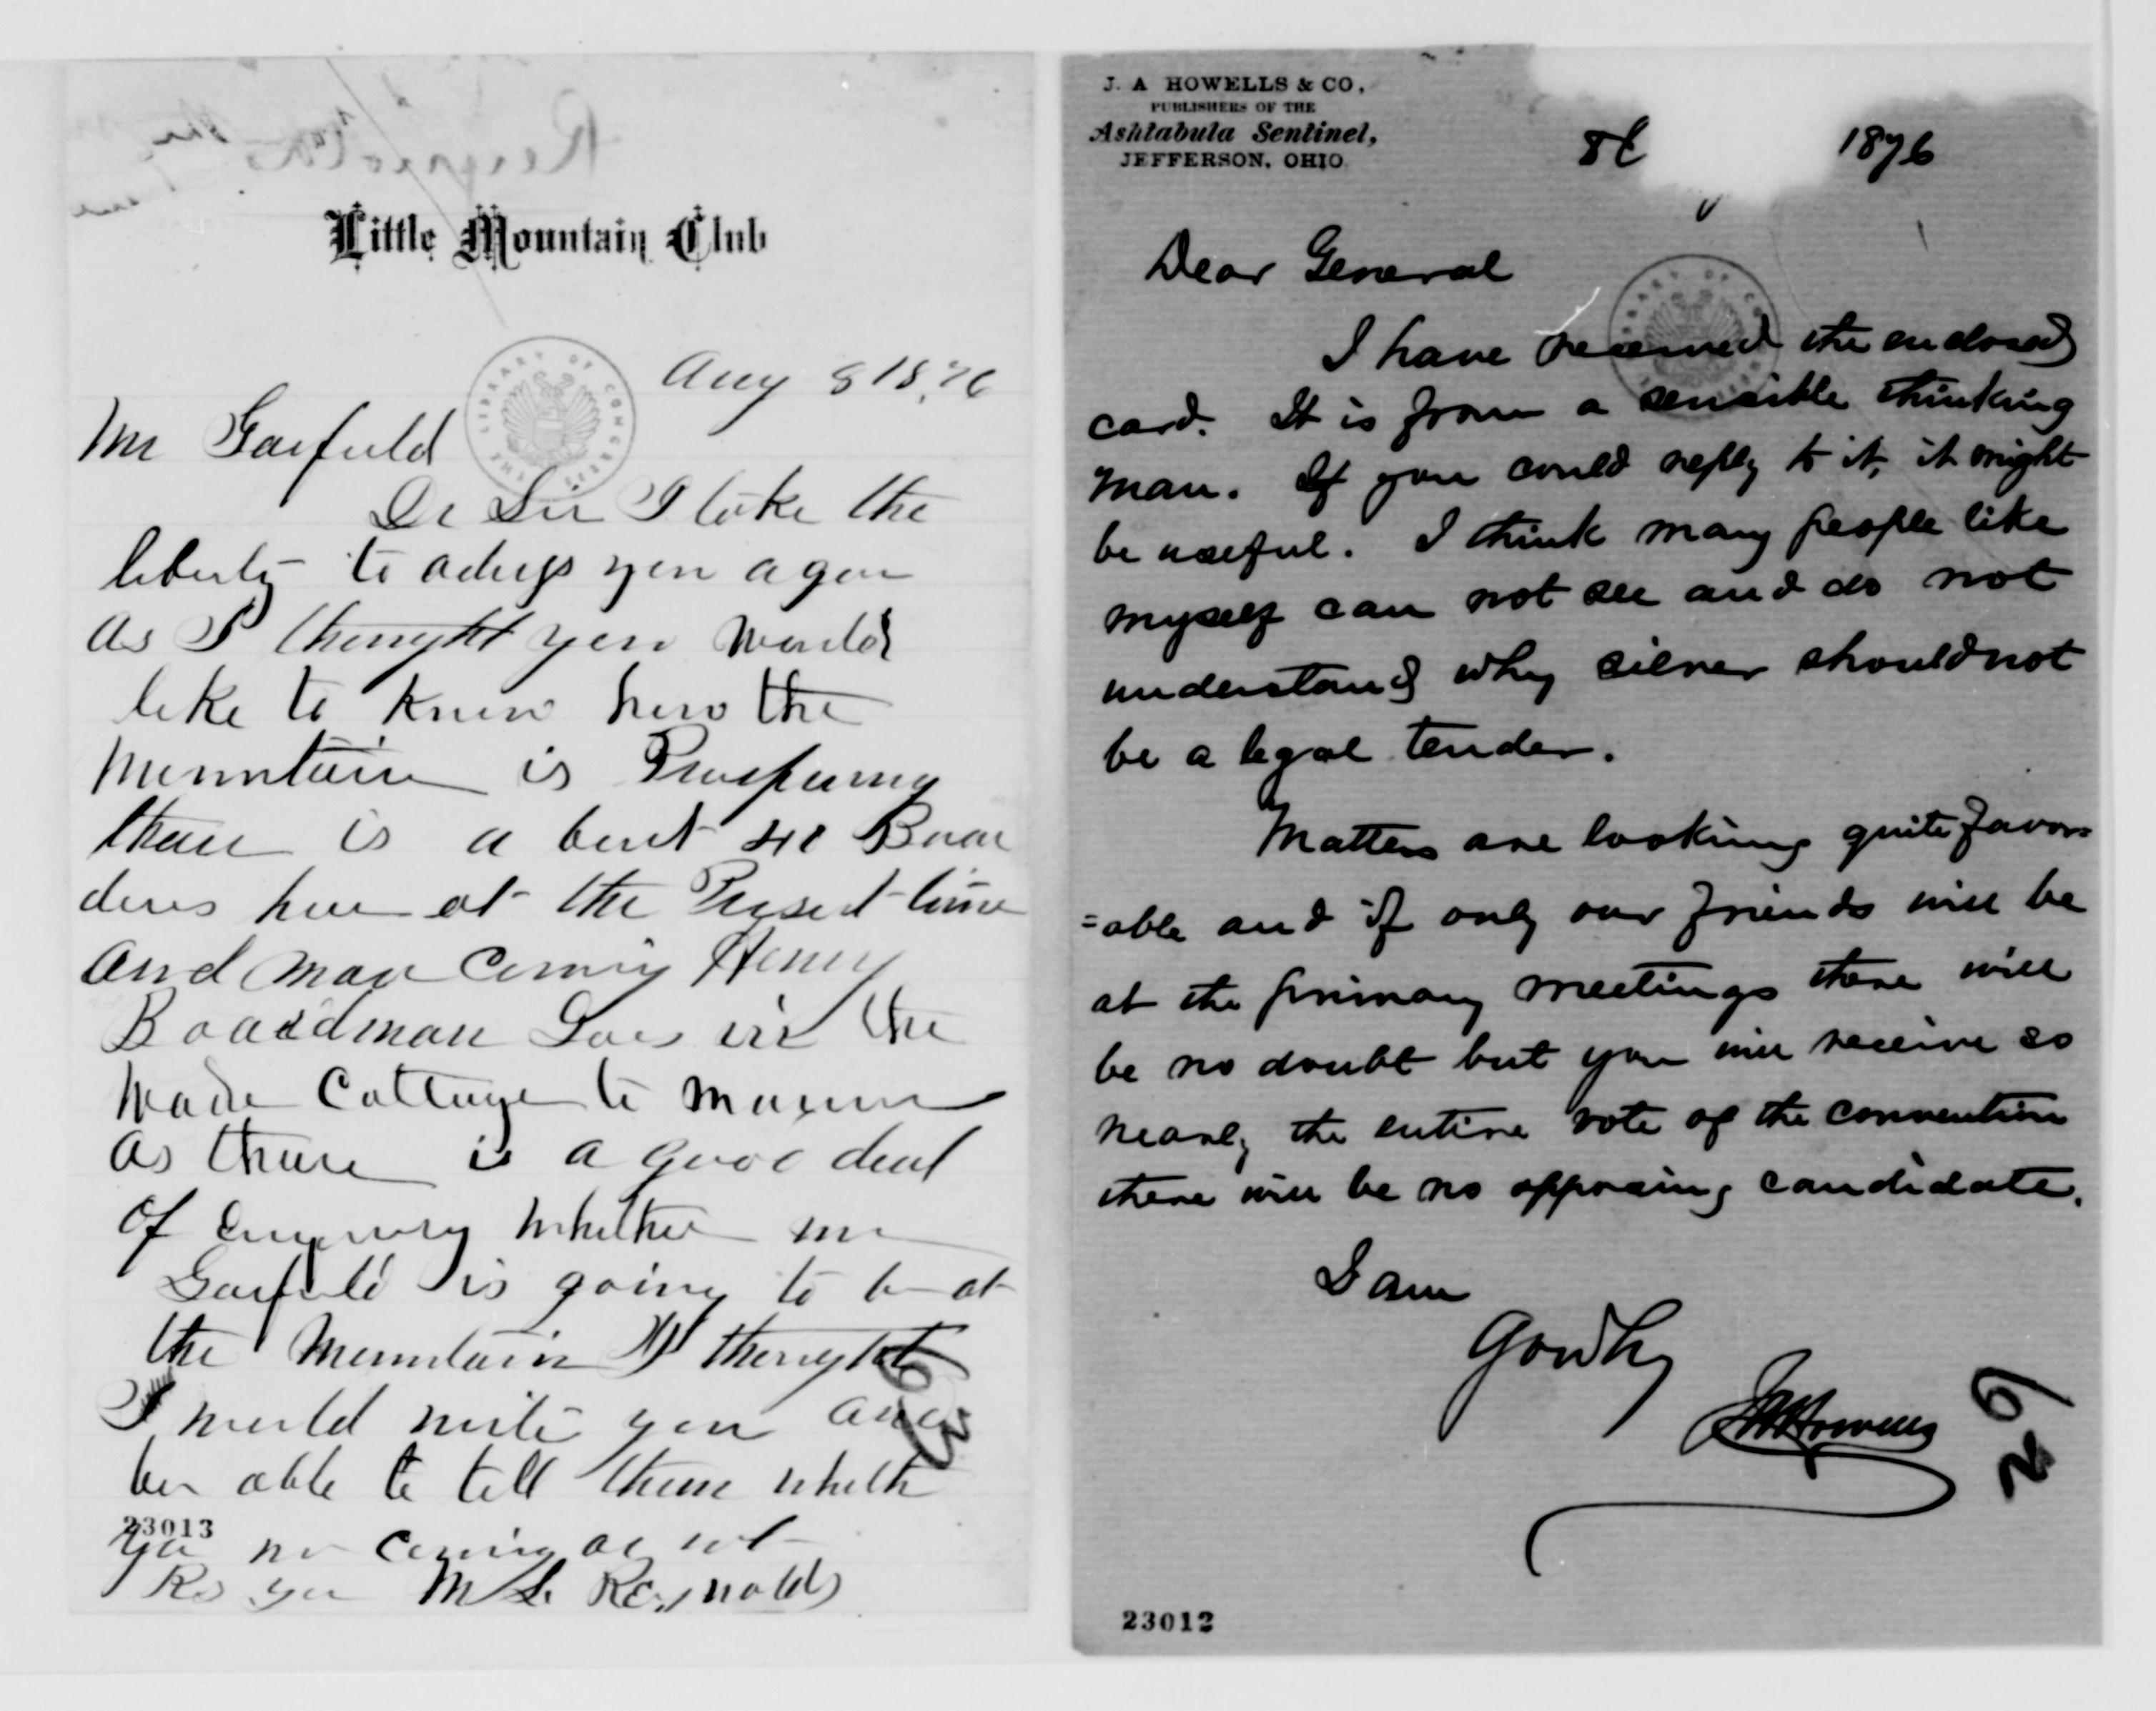 Little Mountain Club
Aug 8 1876
Mr Garfield
De Sir I take the
liberty to adress you agan
as I thought you would
like to know how the
Mountain is Prospering
thare is a bout 40 Boar
ders here at the Present time
and moar coming Henry
Boardman Goes in the
Wade Cottage to morrow
as thare is a good deal
of enquiry whether mr
Garfield is going to be at
the Mountain I thought
I would write you and
be able to tell them wheth
you are coming or not
Rs you M L Reynolds
23013
63
J. A HOWELLS & CO,
PUBLISHERS OF THE
Ashtabula Sentinel,
JEFFERSON, OHIO
8t 1876
Dear General
I have received the enclosed
card. It is from a sensible thinking
man. If you could reply to it, it might
be useful. I think many people like
myself can not see and do not
understand why silver should not
be a legal tender.
Matters are looking quite favor=
=able and if only our friends will be
at the primary meetings there will
be no doubt but you will receive so
nearly the entire vote of the convention
there will be no opposing candidate.
I am
Yours truly
J A Howells
62
23012
LIBRARY OF CONGRESS